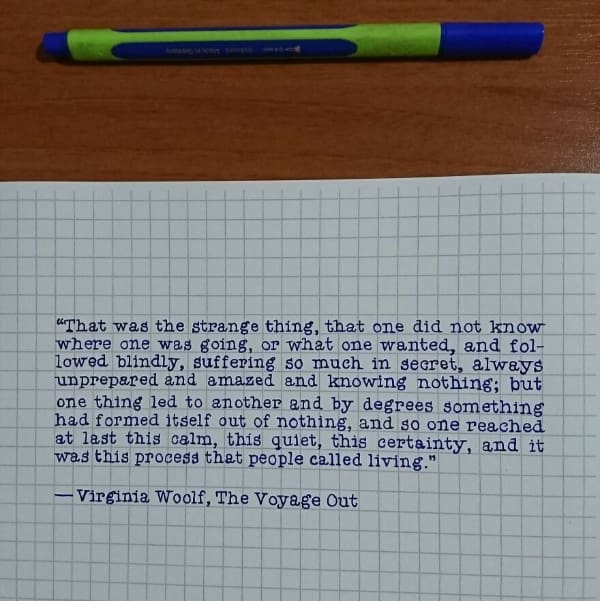 “That was the strange thing, that one did not know
where one was going, or what one wanted, and fol-
lowed blindly, suffering so much in secret, always
unprepared and amazed and knowing nothing; but
one thing led to another and by degrees something
had formed itself out of nothing, and so one reached
at last this calm, this quiet, this certainty, and it
was this process that people called living.”
— Virginia Woolf, The Voyage Out